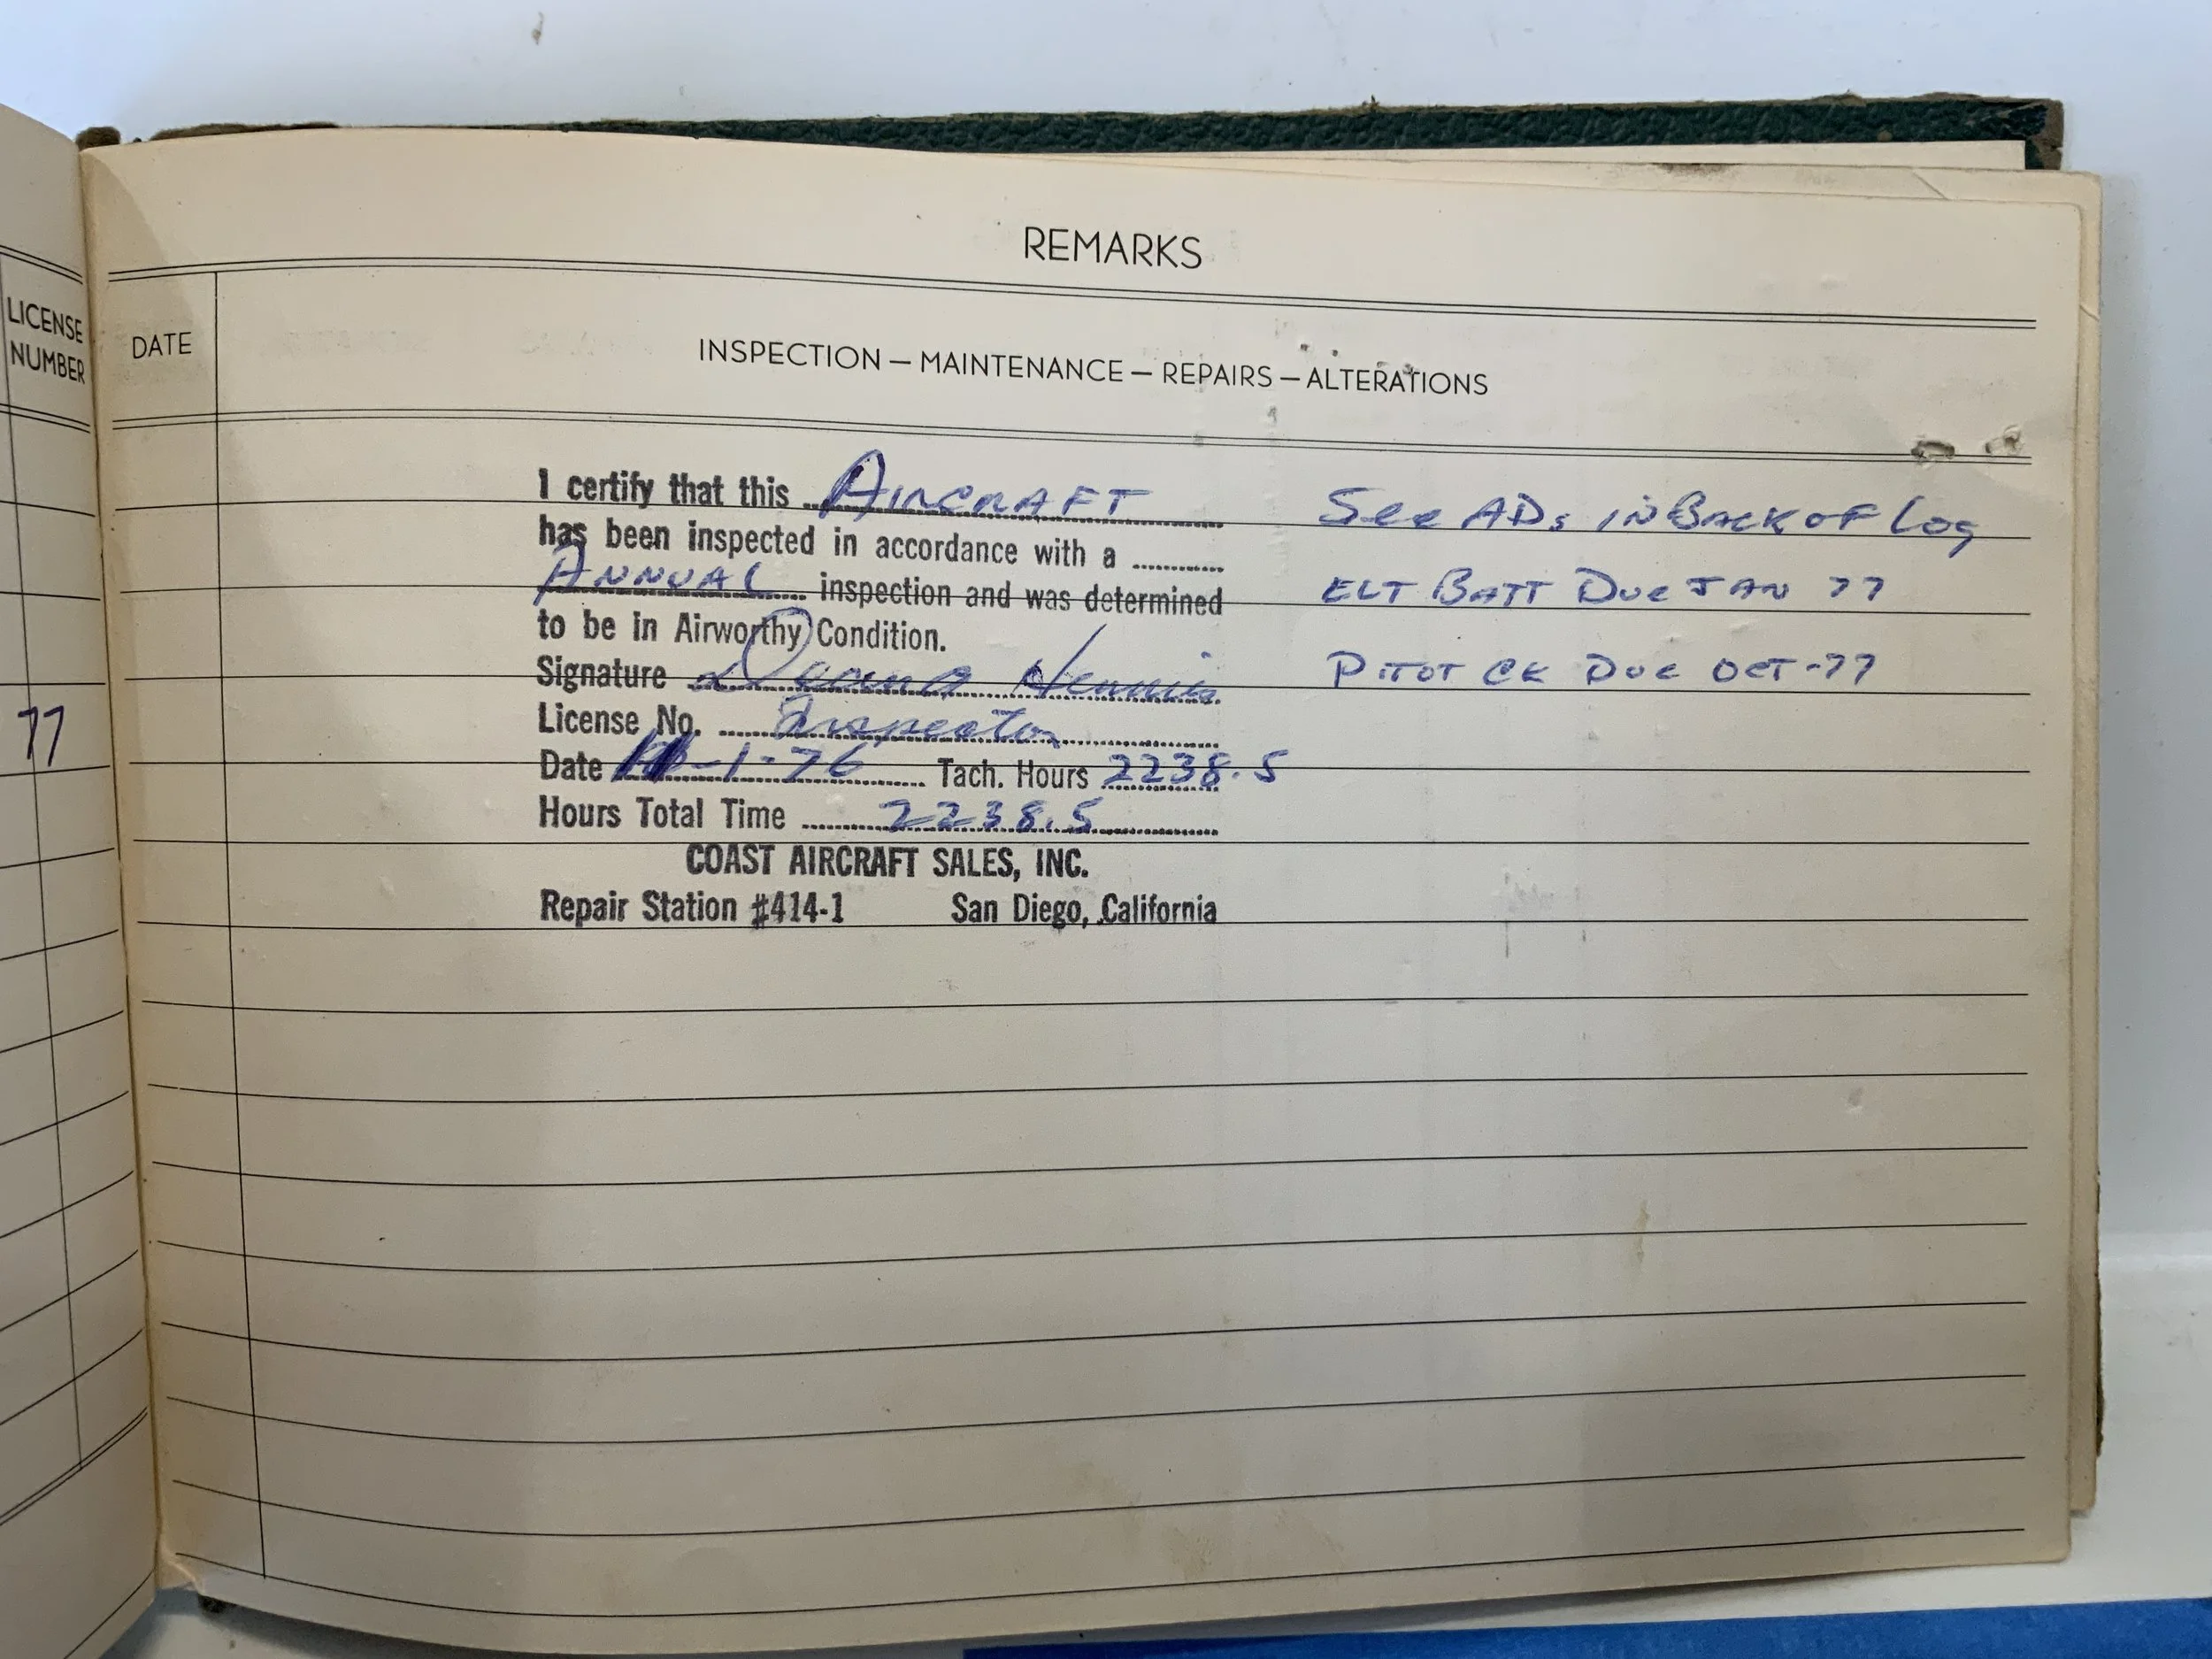 REMARKS
LICENSE
NUMBER
DATE
INSPECTION — MAINTENANCE — REPAIRS — ALTERATIONS
I certify that this AIRCRAFT
has been inspected in accordance with a
ANNUAL inspection and was determined
to be in Airworthy Condition.
Signature
License No. Inspector
Date -1-76 Tach. Hours 2238.5
Hours Total Time 2238.5
COAST AIRCRAFT SALES, INC.
Repair Station #414-1 San Diego, California
See ADs IN BACK OF Log
ELT BATT Due JAN 77
PITOT CK DUE OCT-77
77